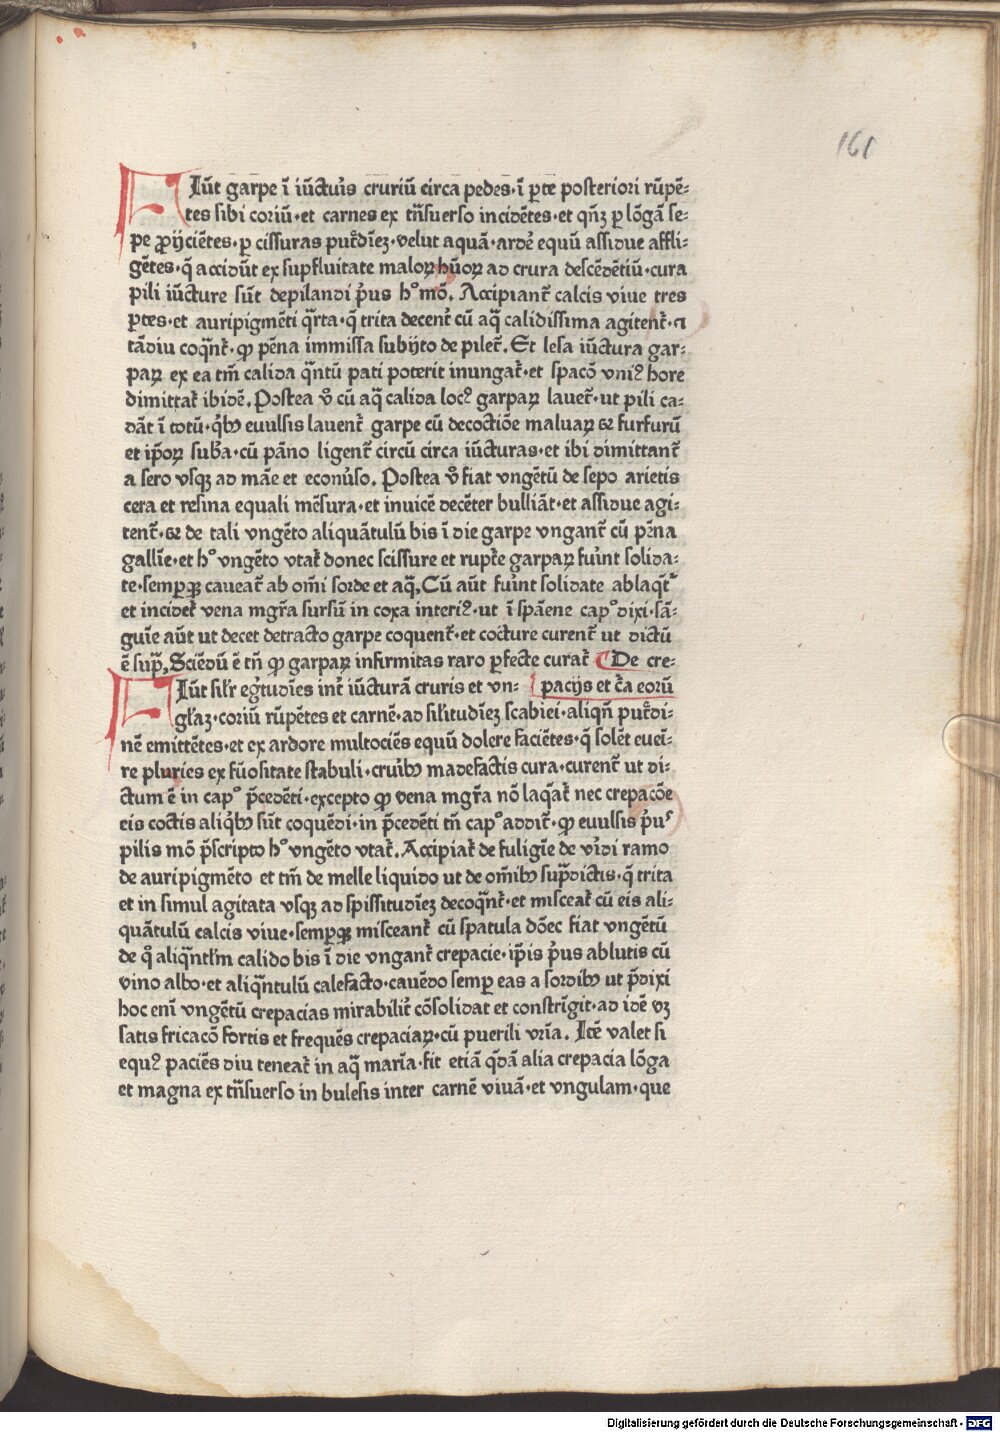 161
FIūt garpe ī iūctur̛is cruriū circa pedes·ī ꝑte posteriori rūpē⸗
tes sibi coriū·et carnes ex trāsuerso incidētes·et qn̄qꝫ ꝑ lōgā se⸗
pe ꝓijciētes·ꝑ cissuras putr̛dīeꝫ·velut aquā·arde̛ equū assidue affli⸗
gētes·q̄ accidūt ex supfluitate maloꝝ hūoꝝ ad crura descēdētiū·cura
pili iūcture sūt depilandi pr̛us hº mō. Accipiant̛ calcis viue tres
ꝑtes·et auripigmēti q̄rta·q̄ trita decent̛ cū aq̄ calidissima agitent̛·⁊
tādiu coq̄nt̛·ꝙ pēna immissa subijto de pilet̛. Et lesa iūctura gar⸗
paꝝ ex ea tm̄ calida q̄ntū pati poterit inungat̛·et spacō vniꝰ hore
dimittat̛ ibidē. Postea v̛o cū aq̄ calida locꝰ garpaꝝ lauet̛·ut pili ca⸗
dāt ī totū·qͥbꝫ euulsis lauent̛ garpe cū decoctiōe maluaꝝ ⁊ furfurū
et ip̄oꝝ sub̛a·cū pāno ligent̛ circū circa iūcturas·et ibi dimittant̛
a sero vsqꝫ ad māe et econưso. Postea v̛o fiat vngētū de sepo arietis
cera et resina equali mēsura·et inuicē decēter bulliāt·et assidue agi⸗
tent̛·⁊ de tali vngēto aliquātulū bis ī die garpe vngant̛ cū pēna
gallīe·et hº vngēto vtat̛ donec scissure et rupte̛ garpaꝝ fuīnt solida⸗
te·sempqꝫ caueat̛ ab om̄i sorde et aq̄, Cū aūt fuīnt solidate ablaqt̛
et incidet̛ vena mgr̄a sursū in coxa interiꝰ·ut ī spāene capº dixi·sā⸗
guīe aūt ut decet detracto garpe coquent̛·et cocture curent̛ ut dictū
ē sup̄, Sciēdū ē tn̄ ꝙ garpaꝝ infirmitas raro ꝑfecte curat̛ De cre⸗
FIūt sil̛r egr̛tudīes int̛ iūcturā cruris et vn⸗ pacijs et cr̛a eorū
gl̛aꝫ·coriū rūpētes et carnē·ad sil̛itudīeꝫ scabiei·aliqn̄ putr̛di⸗
nē emittētes·et ex ardore multociēs equū dolere faciētes·q̄ solēt eueī⸗
re pluries ex fūositate stabuli·crur̛ibꝫ madefactis cura·curent̛ ut di⸗
ctum ē in capº p̄cedēti·excepto ꝙ vena mgr̄a nō laq̄at̛ nec crepacōe
eis coctis aliqͥbꝫ sūt coquēdi·in p̄cedēti tn̄ capº addit̛·ꝙ euulsis pr̛us
pilis mō p̄scripto hº vngēto vtat̛. Accipiat̛ de fuligīe de vir̛di ramo
de auripigmēto et tm̄ de melle liquido ut de om̄ibꝫ sup̄dictis·q̄ trita
et in simul agitata vsqꝫ ad spissitudīeꝫ decoq̄nt̛·et misceat̛ cū eis ali⸗
quātulū calcis viue·sempqꝫ misceant̛ cū spatula dōec fiat vngētū
de qͦ aliq̄ntl̛m calido bis ī die vngant̛ crepacie·ip̄is pr̛us ablutis cū
vino albo·et aliq̄ntulū calefacto·cauēdo semp eas a sordibꝫ ut p̄dixi
hoc eni̅ vngētū crepacias mirabilit̛ cōsolidat et constrīgit·ad idē vꝫ
satis fricacō fortis et frequēs crepaciaꝝ·cū puerili vrīa. Itē valet si
equꝰ paciēs diu teneat̛ in aq̄ marīa·fit etiā qͥdā alia crepacia lōga
et magna ex trāsuerso in bulesis inter carnē viuā·et vngulam·que
Digitalisierung gefördert durch die Deutsche Forschungsgemeinschaft - DFG